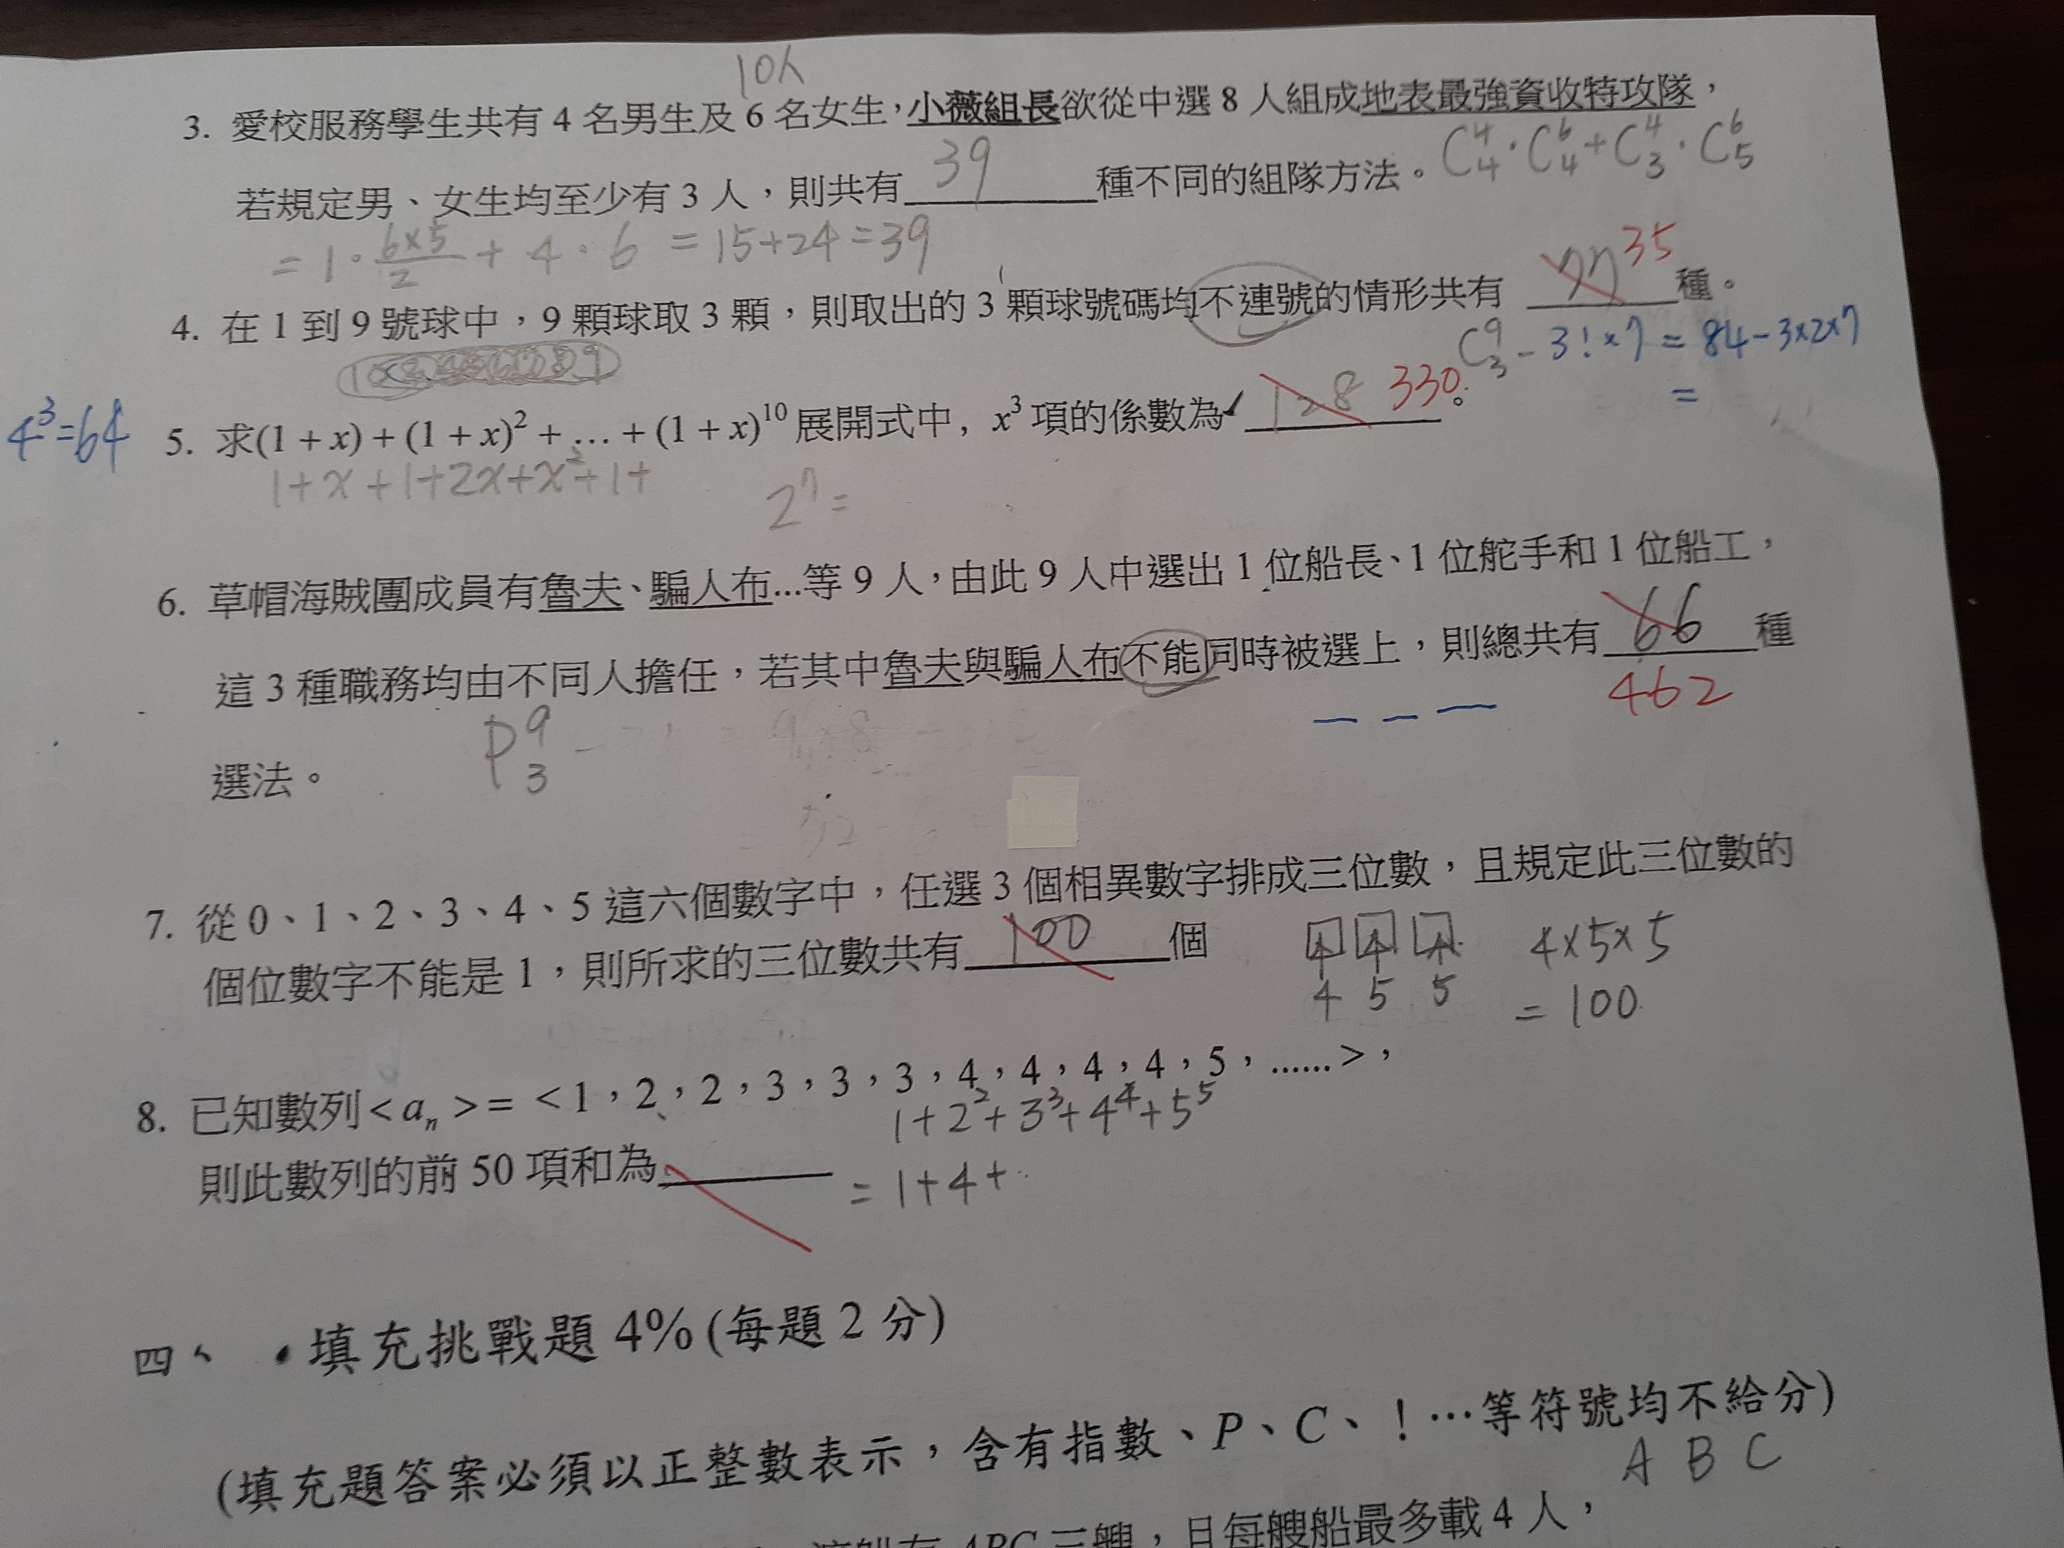 10人
3. 愛校服務學生共有 4 名男生及 6 名女生，小薇組長欲從中選 8 人組成地表最強資收特攻隊，
若規定男、女生均至少有 3 人，則共有 39 種不同的組隊方法。 C⁴₄·C⁶₄+C⁴₃·C⁶₅
= 1·6×5/2 + 4·6 = 15+24=39
4. 在 1 到 9 號球中，9 顆球取 3 顆，則取出的 3 顆球號碼均不連號的情形共有 77 35 種。
C⁹₃-3!×7=84-3×2×7
=
4³=64
5. 求(1 + x) + (1 + x)² + … + (1 + x)¹⁰ 展開式中, x³ 項的係數為 128 330。
1+x+1+2x+x²+1+
2⁷=
6. 草帽海賊團成員有魯夫、騙人布...等 9 人，由此 9 人中選出 1 位船長、1 位舵手和 1 位船工，
這 3 種職務均由不同人擔任，若其中魯夫與騙人布不能同時被選上，則總共有 66 種
462
選法。 P⁹₃ -
7. 從 0、1、2、3、4、5 這六個數字中，任選 3 個相異數字排成三位數，且規定此三位數的
個位數字不能是 1，則所求的三位數共有 100 個 4×5×5
4 5 5 = 100
8. 已知數列< aₙ >= < 1，2，2，3，3，3，4，4，4，4，5，......>，
1+2²+3³+4⁴+5⁵
則此數列的前 50 項和為 = 1+4+
四、 • 填充挑戰題 4% (每題 2 分)
(填充題答案必須以正整數表示，含有指數、P、C、！…等符號均不給分)
A B C
ABC 三艘，且每艘船最多載 4 人，